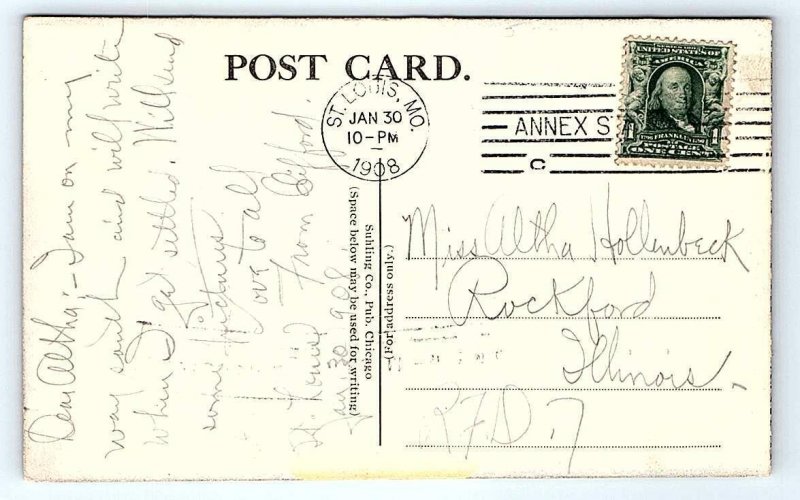 POST CARD.
ST. LOUIS, MO.
JAN 30
10-PM
1908
ANNEX S
C
SERIES 1902
UNITED STATES OF
AMERICA
FRANKLIN
POSTAGE
1 ONE CENT 1
Dear Altha:- I am on my
way south and will write
when I get settled. Will send
some pictures.
Love to all
From Gifford.
St. Louis
Jan. 30, 908.
Suhling Co., Pub. Chicago
(Space below may be used for writing)
(For address only.)
Miss Altha Hollenbeck
Rockford
Illinois,
RFD. 7